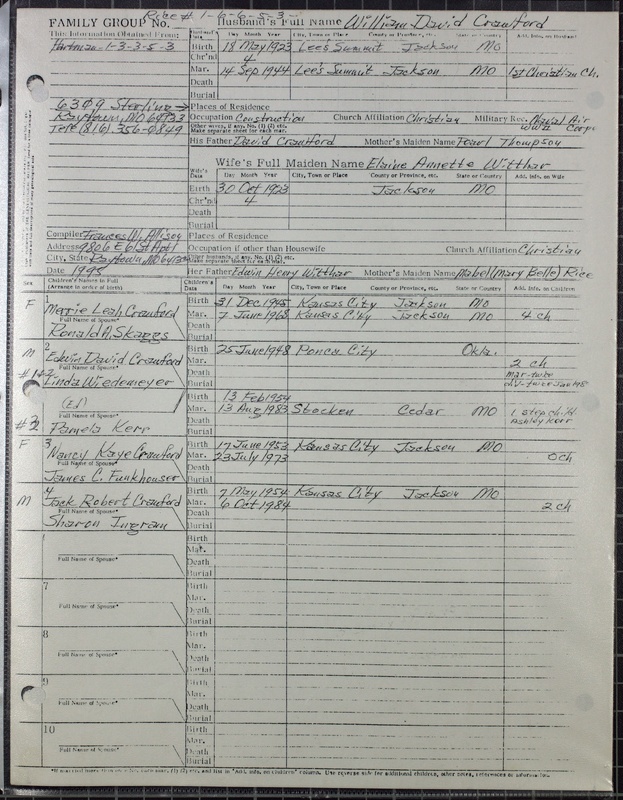 Rice # 1-6-6-5-3-
FAMILY GROUP No. Husband's Full Name William David Crawford
This Information Obtained From: Husband's Data Day Month Year City, Town or Place County or Province, etc. State or Country Add. Info. on Husband
Hartman-1-3-3-5-3
Birth 18 May 1923 Lee's Summit Jackson MO
Chr'nd 4
Mar. 14 Sep 1944 Lee's Summit Jackson MO 1st Christian Ch.
Death
Burial
6309 Sterling Places of Residence
Raytown, MO 64133 Occupation Construction Church Affiliation Christian Military Rec. Naval Air Corps WW2
Tele (816) 356-0849 Other wives, if any, No. (1) (2) etc. Make separate sheet for each mar.
His Father David Crawford Mother's Maiden Name Pearl Thompson
Wife's Full Maiden Name Elaine Annette Witthar
Wife's Data Day Month Year City, Town or Place County or Province, etc. State or Country Add. Info. on Wife
Birth 30 Oct 1923 Jackson MO
Chr'nd 4
Death
Burial
Compiler Frances W. Allison Places of Residence
Address 9806 E 61st Apt 1 Occupation if other than Housewife Church Affiliation Christian
City, State Raytown, MO 64133 Other husbands, if any, No. (1) (2) etc. Make separate sheet for each mar.
Date 1995 Her Father Edwin Henry Witthar Mother's Maiden Name Mabel (Mary Belle) Rice
Sex Children's Names in Full (Arrange in order of birth) Children's Data Day Month Year City, Town or Place County or Province, etc. State or Country Add. Info. on Children
F 1 Merrie Leah Crawford Birth 31 Dec 1945 Kansas City Jackson Mo
Full Name of Spouse* Mar. 7 June 1968 Kansas City Jackson MO 4 ch
Ronald A. Skaggs Death
Burial
M 2 Edwin David Crawford Birth 25 June 1948 Ponca City Okla.
Full Name of Spouse* Mar. 2 ch
Linda Wiedemeyer Death mar-twice
Burial div-twice
(Ed) 13 Feb 1954
Mar. 13 Aug 1983 Stocken Cedar MO 1 step ch
#2 Pamela Kerr Death Ashley Kerr
Burial
F 3 Nancy Kaye Crawford Birth 17 June 1953 Kansas City Jackson MO
Full Name of Spouse* Mar. 23 July 1973 0 ch
James C. Funkhouser Death
Burial
M 4 Jack Robert Crawford Birth 7 May 1954 Kansas City Jackson MO
Full Name of Spouse* Mar. 6 Oct 1984 2 ch
Sharon Ingram Death
Burial
Birth
Mar.
Full Name of Spouse* Death
Burial
7 Birth
Mar.
Full Name of Spouse* Death
Burial
8 Birth
Mar.
Full Name of Spouse* Death
Burial
9 Birth
Mar.
Full Name of Spouse* Death
Burial
10 Birth
Mar.
Full Name of Spouse* Death
Burial